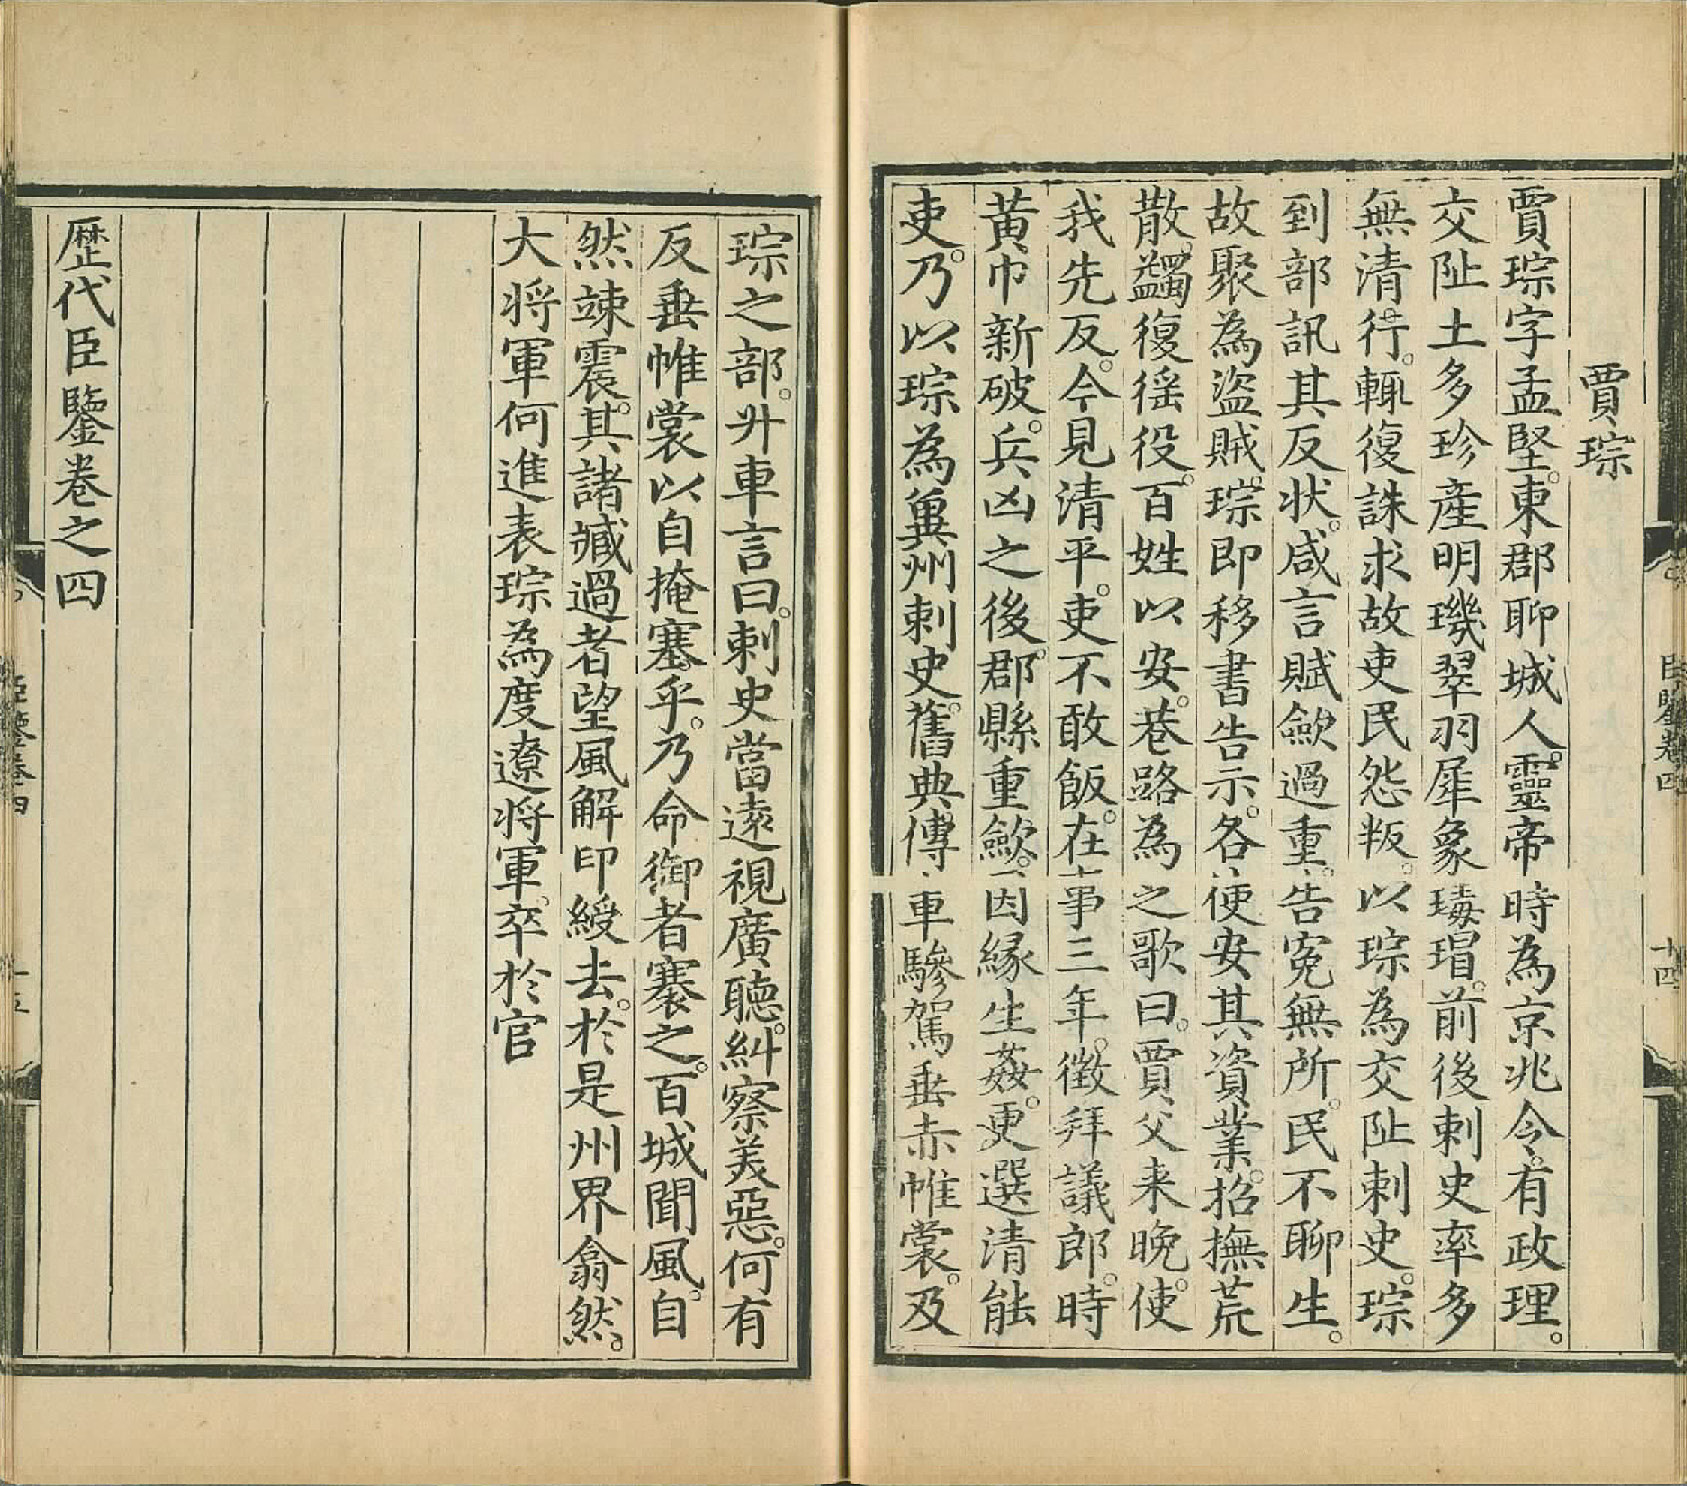 賈琮
賈琮字孟堅。東郡聊城人。靈帝時為京兆令。有政理。
交阯土多珍產明璣翠羽犀象瑇瑁。前後刺史率多
無清行。輒復誅求故吏民怨叛。以琮為交阯刺史。琮
到部訊其反状。咸言賦歛過重。告寃無所。民不聊生。
故聚為盜賊。琮即移書告示。各使安其資業。招撫荒
散。蠲復徭役。百姓以安。巷路為之歌曰。賈父来晚。使
我先反。今見清平。吏不敢飯。在事三年。徵拜議郎。時
黄巾新破。兵凶之後。郡縣重歛。因縁生姦。更選清能
吏。乃以琮為冀州刺史。舊典。傳車驂駕垂赤帷裳。及
琮之部。升車言曰。刺史當遠視廣聽。糾察美惡。何有
反垂帷裳以自掩塞乎。乃命御者褰之。百城聞風。自
然竦震。其諸臧過者望風解印綬去。於是州界翕然。
大将軍何進表琮為度遼将軍。卒於官
歷代臣鑒卷之四
臣鑒卷四
十四
臣鑒卷四
十五